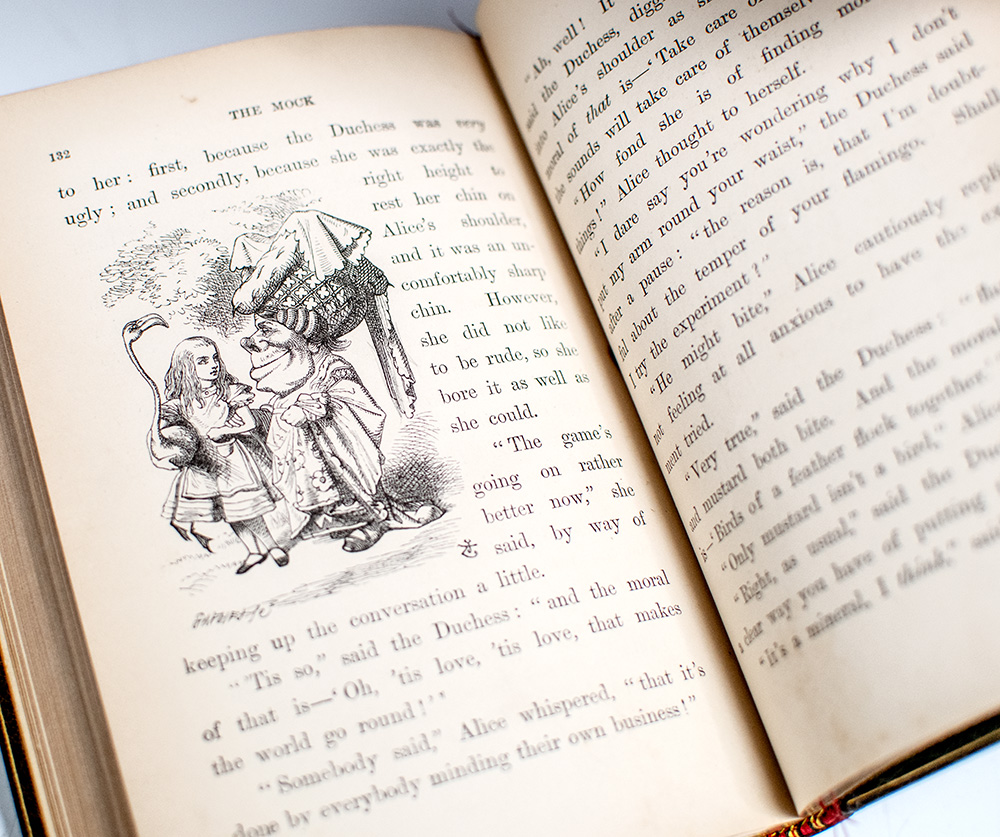 THE MOCK
132
to her: first, because the Duchess was very
ugly; and secondly, because she was exactly the
right height to
rest her chin on
Alice's shoulder,
and it was an un-
comfortably sharp
chin. However,
she did not like
to be rude, so she
bore it as well as
she could.
“The game's
going on rather
better now,” she
said, by way of
keeping up the conversation a little.
“'Tis so,” said the Duchess: “and the moral
of that is—‘Oh, 'tis love, 'tis love, that makes
the world go round!’”
“Somebody said,” Alice whispered, “that it's
done by everybody minding their own business!”
“Ah, well! It
said the Duchess, digg
into Alice's shoulder as
moral of that is—‘Take care of
the sounds will take care of themselve
“How fond she is of finding mo
things!” Alice thought to herself.
“I dare say you're wondering why I don't
put my arm round your waist,” the Duchess said
after a pause: “the reason is, that I'm doubt-
ful about the temper of your flamingo. Shall
I try the experiment?”
“He might bite,” Alice cautiously repli
not feeling at all anxious to have the
ment tried.
“Very true,” said the Duchess: “fla
and mustard both bite. And the moral
is—‘Birds of a feather flock together.
“Only mustard isn't a bird,” Alic
“Right, as usual,” said the Du
a clear way you have of putting
“It's a mineral, I think,” said